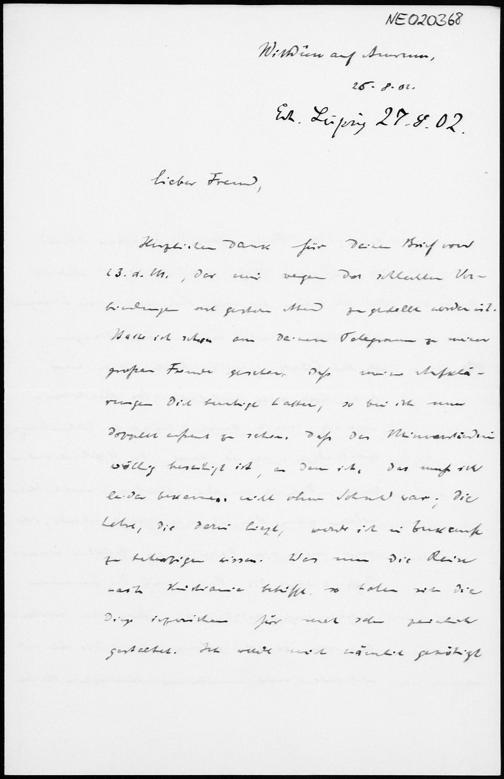 NE020368
Wittdün auf Amrum,
26. 8. 02.
Erh. Leipzig 27.8.02.
Lieber Freund,
Herzlichen Dank für Deinen Brief vom
23. d. M., der mir wegen der schlechten Ver-
bindungen erst gestern Abend zugestellt worden ist.
Hatte ich schon aus Deinem Telegramm zu meiner
großen Freude gesehen, daß meine Aufklä-
rungen Dich beruhigt hatten, so bin ich nun
doppelt erfreut zu sehen, daß das Missverständnis
völlig beseitigt ist, an dem ich, das muß ich
leider bekennen, nicht ohne Schuld war; die
Lehre, die darin liegt, werde ich in Zukunft
zu beherzigen wissen. Was nun die Reise
nach Kristiania betrifft, so haben sich die
Dinge inzwischen für mich sehr
gestaltet. Ich sehe mich nämlich genötigt